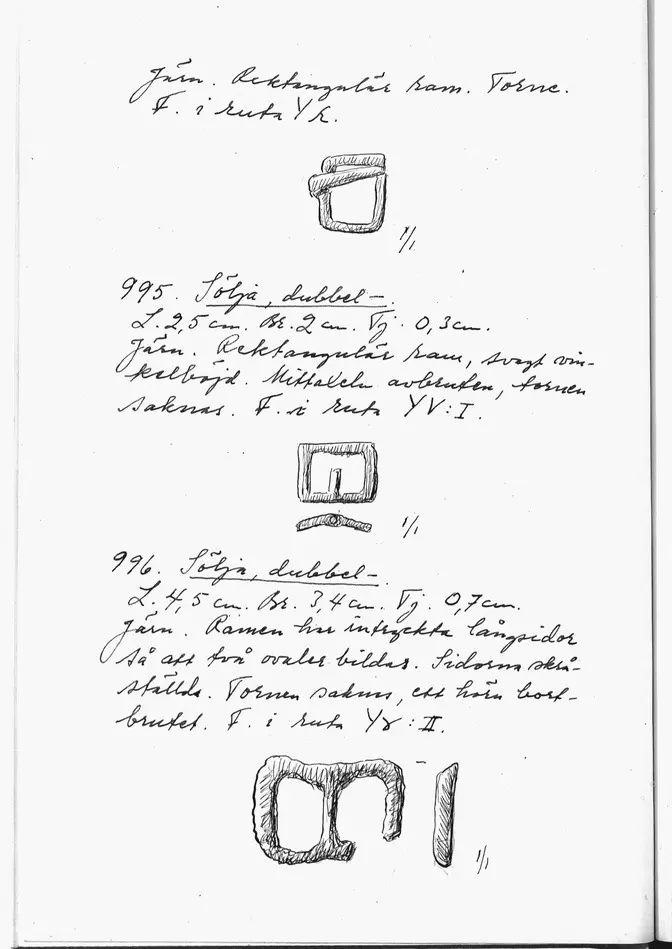 Järn. Rektangulär ram. Torne.
F. i ruta Y
1/1
995. Sölja, dubbel-.
L. 2,5 cm. Br. 2 cm. Tj. 0,3 cm.
Järn. Rektangulär ram, svagt vin-
kelböjd. Mittdeln avbruten, tornen
saknas. F. i ruta YV:I.
1/1
996. Sölja, dubbel-.
L. 4,5 cm. Br. 3,4 cm. Tj. 0,7 cm.
Järn. Ramen har intryckta långsidor
så att två ovaler bildas. Sidorna skrå-
ställda. Tornen saknas, ett hörn bort-
brutet. F. i ruta Yγ:II.
1/1